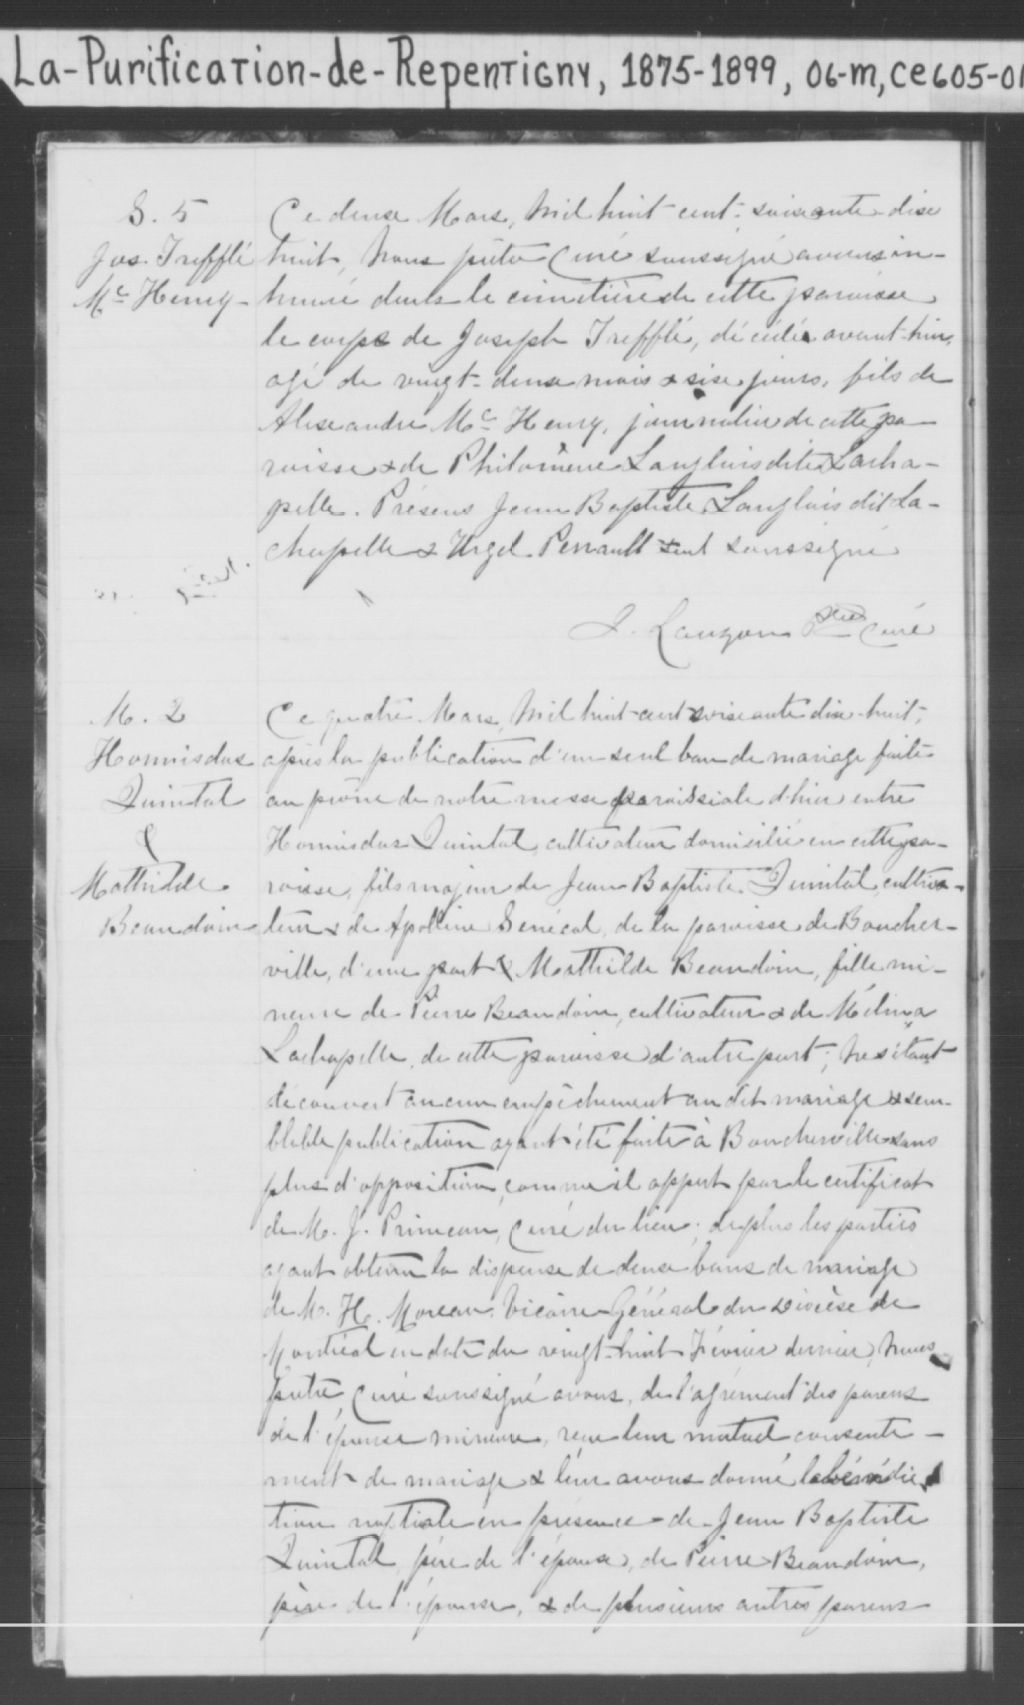 La-Purification-de-Repentigny, 1875-1899, 06-m, ce605-01
S. 5
Jos. Trefflé
Mc Henry
Ce deux Mars, mil huit-cent-soixante-dix
huit, nous prêtre Curé soussigné avons in-
humé dans le cimetière de cette paroisse
le corps de Joseph Trefflé, décédé avant-hier,
agé de vingt-deux mois & six jours, fils de
Alexandre Mc Henry, journalier de cette pa-
roisse & de Philomène Langlois dite Lacha-
pelle. Présens Jean Baptiste Langlois dit La-
chapelle & Urgel Perrault soussigné
J. Lauzon Ptre Curé
M. 2
Hormisdas
Quintal
&
Mathilde
Beaudoin
Ce quatre Mars, mil huit-cent-soixante dix-huit,
après la publication d'un seul ban de mariage faite
au prône de notre messe paroissiale d'hier entre
Hormisdas Quintal, cultivateur domicilié en cette pa-
roisse, fils majeur de Jean Baptiste Quintal, cultiva-
teur & de Apolline Senécal, de la paroisse de Boucher-
ville, d'une part & Mathilde Beaudoin, fille mi-
neure de Pierre Beaudoin, cultivateur & de Mélina
Lachapelle, de cette paroisse d'autre part; ne s'étant
découvert aucun empêchement au dit mariage & sem-
blable publication ayant été faite à Boucherville sans
plus d'opposition, comme il appert par le certificat
de M. J. Primeau, Curé du lieu; de plus les parties
ayant obtenu la dispense de deux bans de mariage
de M. H. Moreau, Vicaire-Général du Diocèse de
Montréal en date du vingt-huit Février dernier, nous
prêtre, Curé soussigné avons, de l'agrément des parens
de l'épouse mineure, reçu leur mutuel consente-
ment de mariage & leur avons donné la bénédic
tion nuptiale en présence de Jean Baptiste
Quintal, père de l'époux, de Pierre Beaudoin,
père de l'épouse, & de plusieurs autres parens